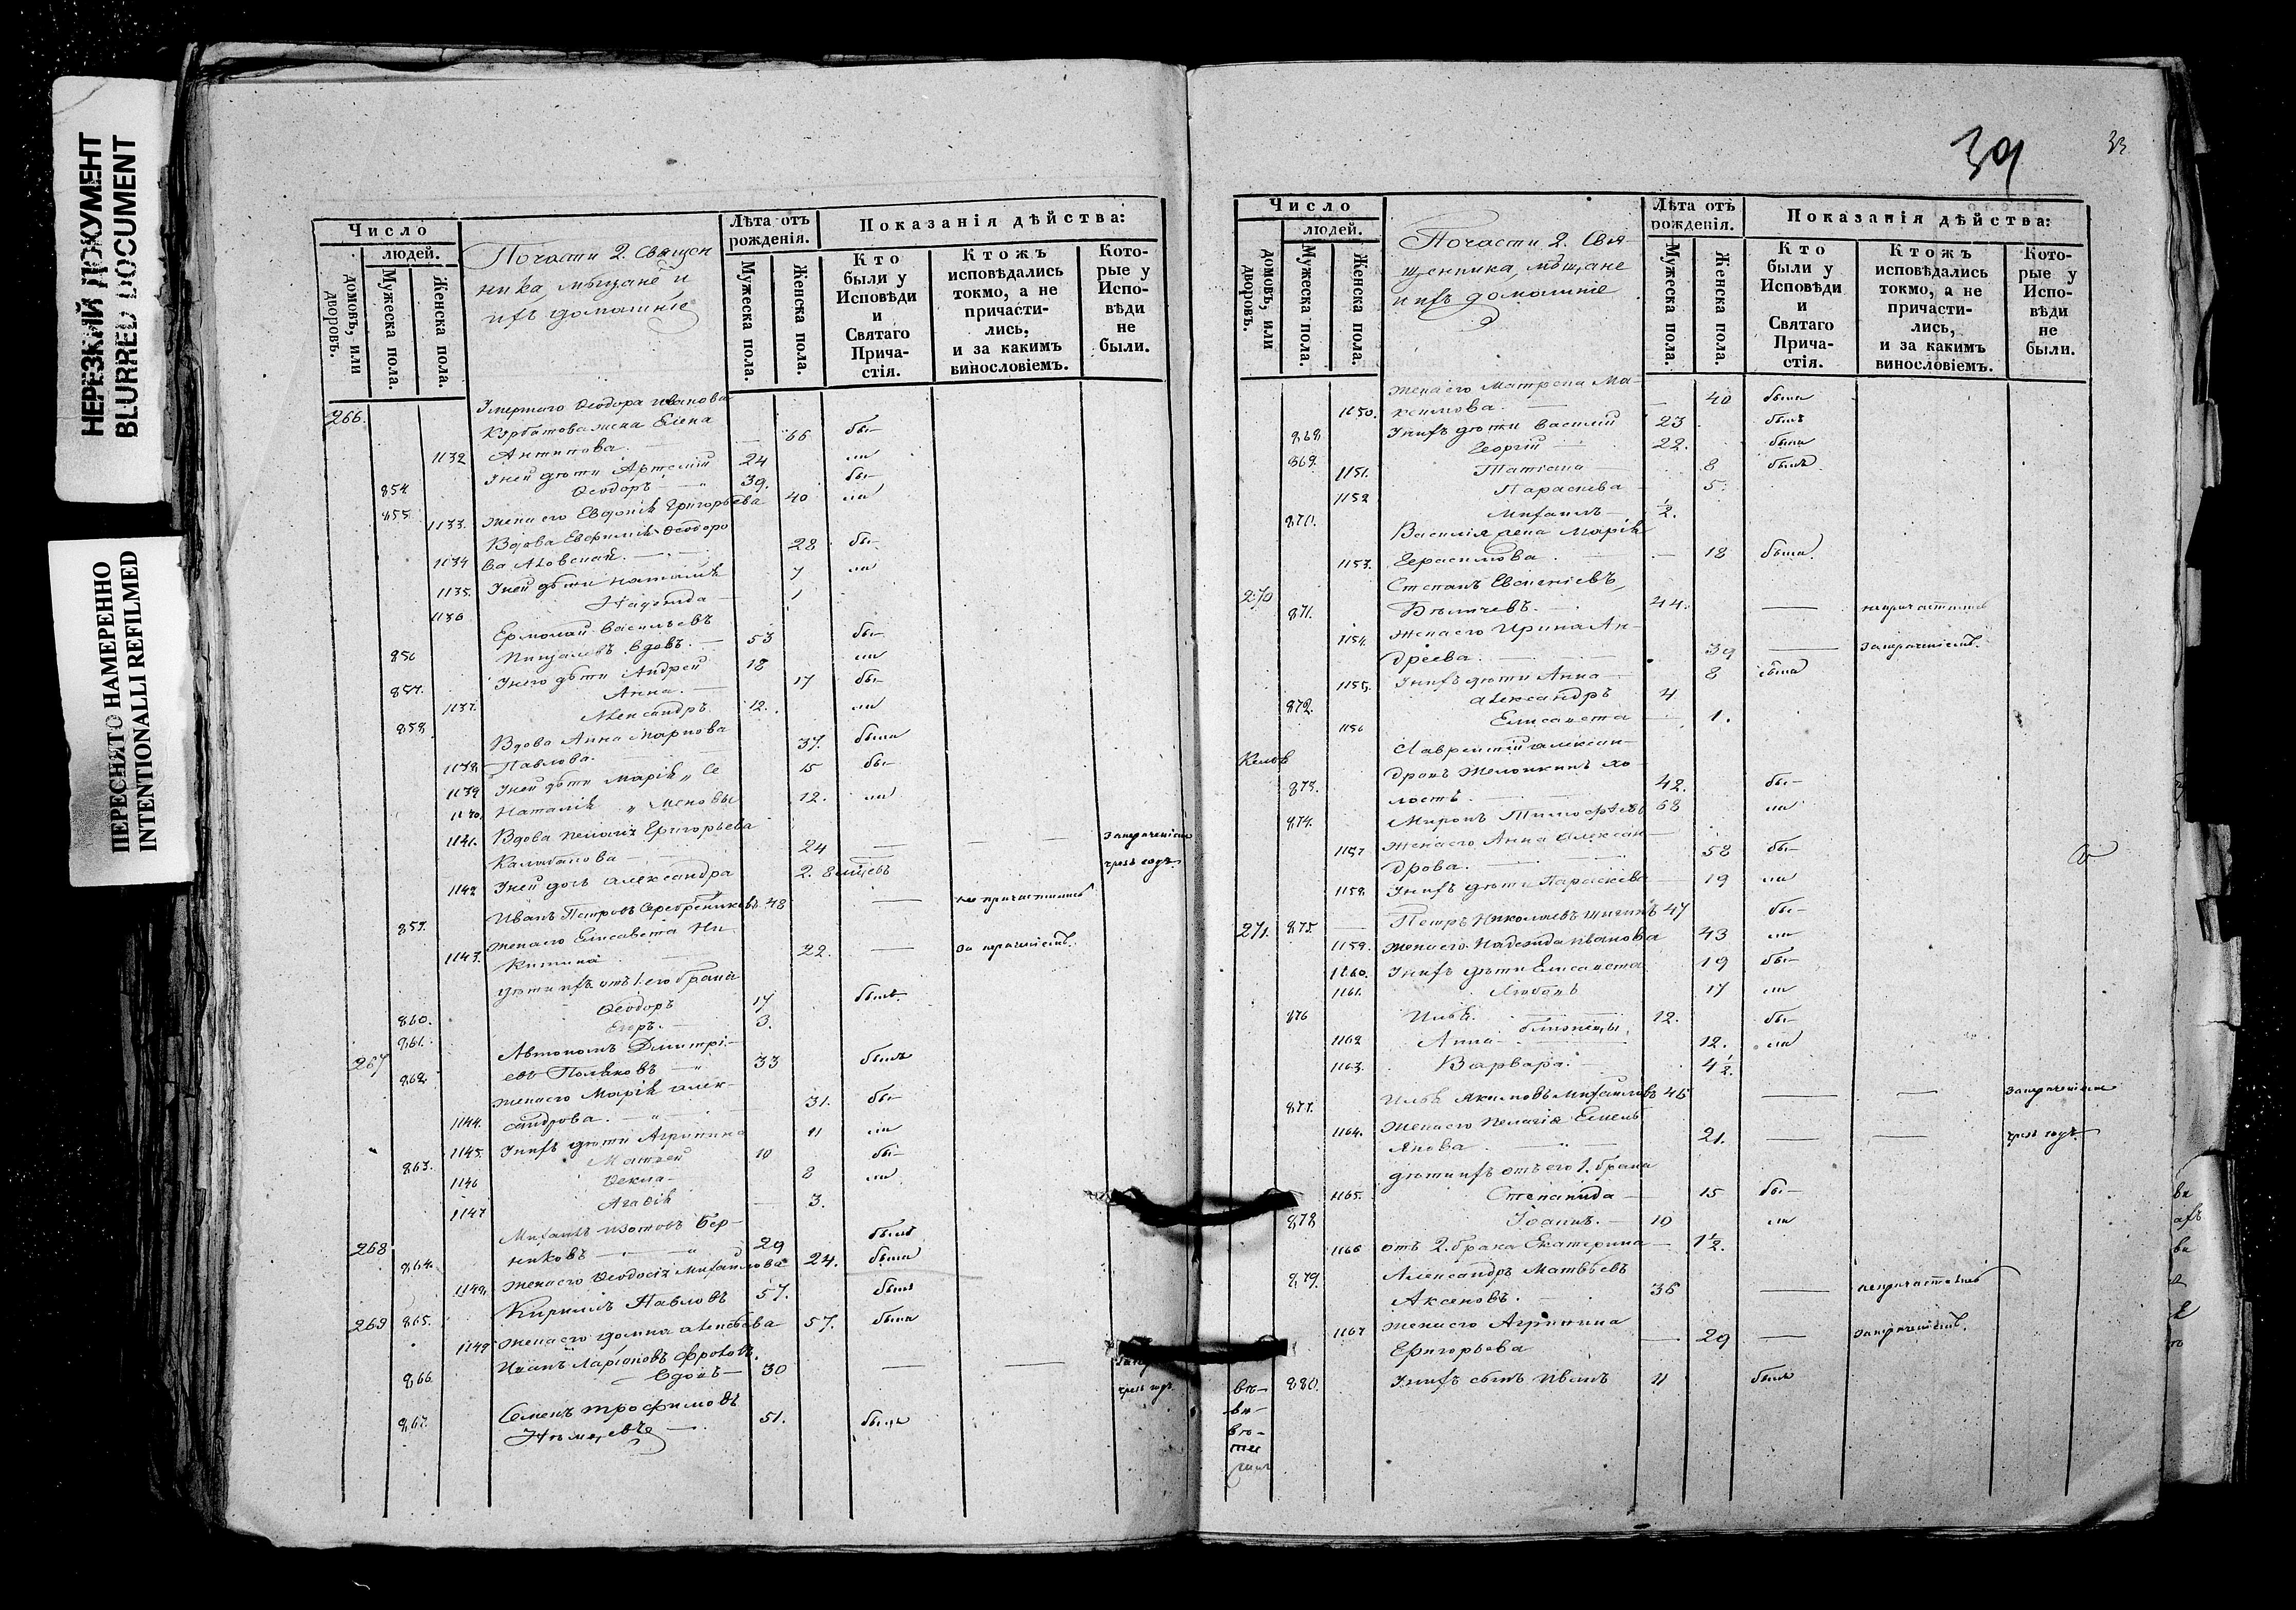 НЕРЕЗКИЙ ДОКУМЕНТ
BLURRED DOCUMENT
ПЕРЕСНЯТО НАМЕРЕННО
INTENTIONALLI REFILMED
Число
людей.
домовъ, или дворовъ.
Мужеска пола.
Женска пола.
По части 2. Священ
ника, мѣщане и
ихъ домашніе
Лѣта отъ рожденія.
Мужеска пола.
Женска пола.
Показанія дѣйства:
Кто были у Исповѣди и Святаго Прича-стія.
Ктожъ исповѣдались токмо, а не причасти-лись, и за какимъ винословіемъ.
Кото-рые у Испо-вѣди не были.
266. Умершаго Ѳеодора Иванова
Курбатова жена Елена
1132 Антипова. 66 бы-
854 У ней дѣти Артемій 24 ли
855 Ѳеодоръ 39. бы-
1133. жена его Евдокія Григорьева 40 ли
Вдова Евфимія Ѳеодоро
1134 ва 28 бы-
1135. У ней дѣти Наталія 7 ли
1136 Надежда 1
Ермолай Васильевъ
856 вдовъ. 53 бы-
857. У него дѣти Андрей 18 ли
1137. Анна. 17 бы-
858. Александръ 12. ли
Вдова Анна Маркова
1138. Павлова. 37. была
1139 У ней дѣти Марія „ Се 15 бы-
1140. Наталія „ меновы 12. ли
1141. Вдова Пелагія Григорьева
24 — — чрезъ годъ.
1142 У ней дочь Александра 2.
859. Иванъ Петровъ Серебрениковъ 48 — не причастились
жена его Елисавета Ни-
1143. китина 22. —
дѣти ихъ отъ 1. его брака
860. Ѳеодоръ 17 былъ
861. Егоръ. 3.
267 Автономъ Дмитрі-
862. евъ Поляковъ 33 былъ
жена его Марія Алек-
1144. сандрова. 31. бы-
1145. У нихъ дѣти Агрипина 11 ли
863. Матвей 10 бы-
1146 Ѳекла 8 ли
1147 Агаѳія 3.
268 Михаилъ Изотовъ Бер-
864. никовъ 29 былъ
1148. жена его Ѳеодосія Михайлова 24. была
269 865. Кирилъ Павловъ 57. былъ
1149 жена его Домна Алексѣева 57. была
Иванъ Ларіоновъ Фроловъ.
866. вдовъ 30 — — чрезъ годъ.
Семенъ Трофимовъ
867. Нѣмцевъ 51. былъ
39
33
Число
людей.
домовъ, или дворовъ.
Мужеска пола.
Женска пола.
По части 2. Свя-
щенника, мѣщане
и ихъ домашніе
Лѣта отъ рожденія.
Мужеска пола.
Женска пола.
Показанія дѣйства:
Кто были у Исповѣди и Святаго Прича-стія.
Ктожъ исповѣдались токмо, а не причасти-лись, и за какимъ винословіемъ.
Кото-рые у Испо-вѣди не были.
жена его Матрена Ма-
1150. ксимова. 40 была
868 У нихъ дѣти Василій 23 былъ
869. Георгій 22. была
1151. Татіана 8 былъ
1152 Параскева 5.
870. Михаилъ 1/2.
Василія жена Марія
1153. Герасимова. 18 была
270 Степанъ Евсеніевъ
871. 44. — не причастились
1154. жена его Ирина Ан-
дреева. 39 —
1155. У нихъ дѣти Анна 8 была
872. Александръ 4
1156 Елисавета 1.
Лаврентій Алексан-
дровъ хо-
873. лостъ. 42. бы-
874. Миронъ Тимофѣевъ 68 ли
1157 жена его Анна Алексан-
дрова. 58 бы-
1158. У нихъ дѣти Параскева 19 ли
271. 875. Петръ Николаевъ 47 бы-
1159. жена его Надежда Иванова 43 ли
1160. У нихъ дѣти Елисавета 19 бы-
1161. Любовь 17 ли
876 Илья. 12. бы-
близнецы.
1162 Анна 12. ли
1163. Варвара. 4 1/2.
877. Илья Акимовъ Михайловъ 45 — —
1164. жена его Пелагія Емель
янова 21. — — чрезъ годъ.
дѣти ихъ отъ его 1. брака
1165. Степанида 15 бы-
878 Іоаннъ. 10 ли
1166 отъ 2. брака Екатерина 1 1/2.
879. Александръ Матвѣевъ
Аксеновъ. 36 — не причастились
1167 жена его Агрипина
Григорьева 29 —
880. У нихъ сынъ Иванъ 11 былъ